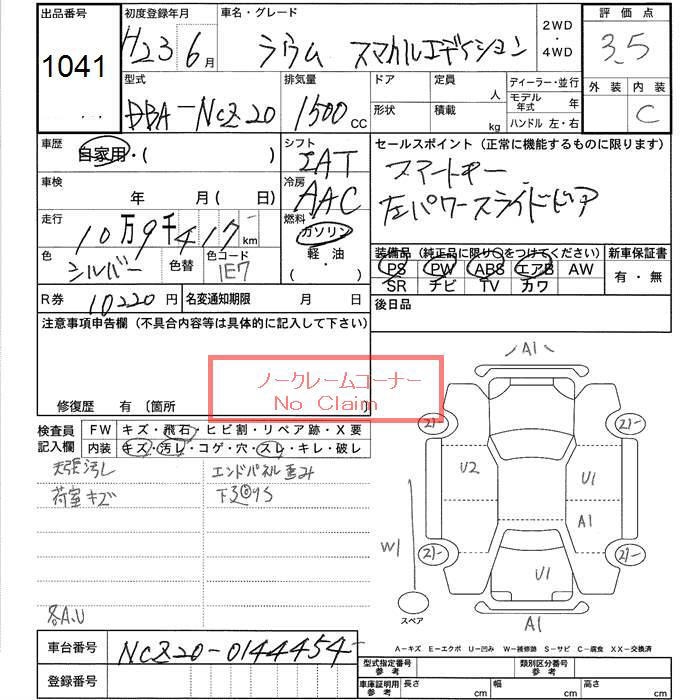 出品番号 初度登録年月 車名・グレード 2WD・4WD 評価点
1041 H23 6月 ラウム スマイルエディション 3.5
型式 排気量 ドア 定員 人 ディーラー・並行 外装 内装
DBA-NCZ20 1500 CC 形状 積載 kg モデル年式 年 C
ハンドル 左・右
車歴 自家用・( ) シフト IAT セールスポイント (正常に機能するものに限ります)
車検 年 月(日) 冷房 AAC スマートキー
走行 10万9千417km 燃料 ガソリン 左パワースライドドア
色 シルバー 色替 色コード 1E7 軽油 ( ・ )
装備品 (純正品に限り○をつけてください) 新車保証書
PS PW ABS エアB AW 有・無
SR ナビ TV カワ
R券 10220円 名変通知期限 月 日 後日品
注意事項申告欄 (不具合内容等は具体的に記入して下さい)
ノークレームコーナー
No Claim
修復歴 有 〔箇所 〕
検査員記入欄 FW キズ・飛石・ヒビ割・リペア跡・X要
内装 キズ・汚レ・コゲ・穴・スレ・キレ・破レ
天張汚し エンドパネル歪み
荷室キズ
各A.U
A1
2)- 2)-
U2 U1
A1
W1 2)- 2)-
U1
スペア A1
A-キズ E-エクボ U-凹み W-補修跡 S-サビ C-腐食 XX-交換済
車台番号 NCZ20-0144454
登録番号
型式指定番号 参考 類別区分番号 参考
車庫証明用 参考 長さ cm 幅 cm 高さ cm